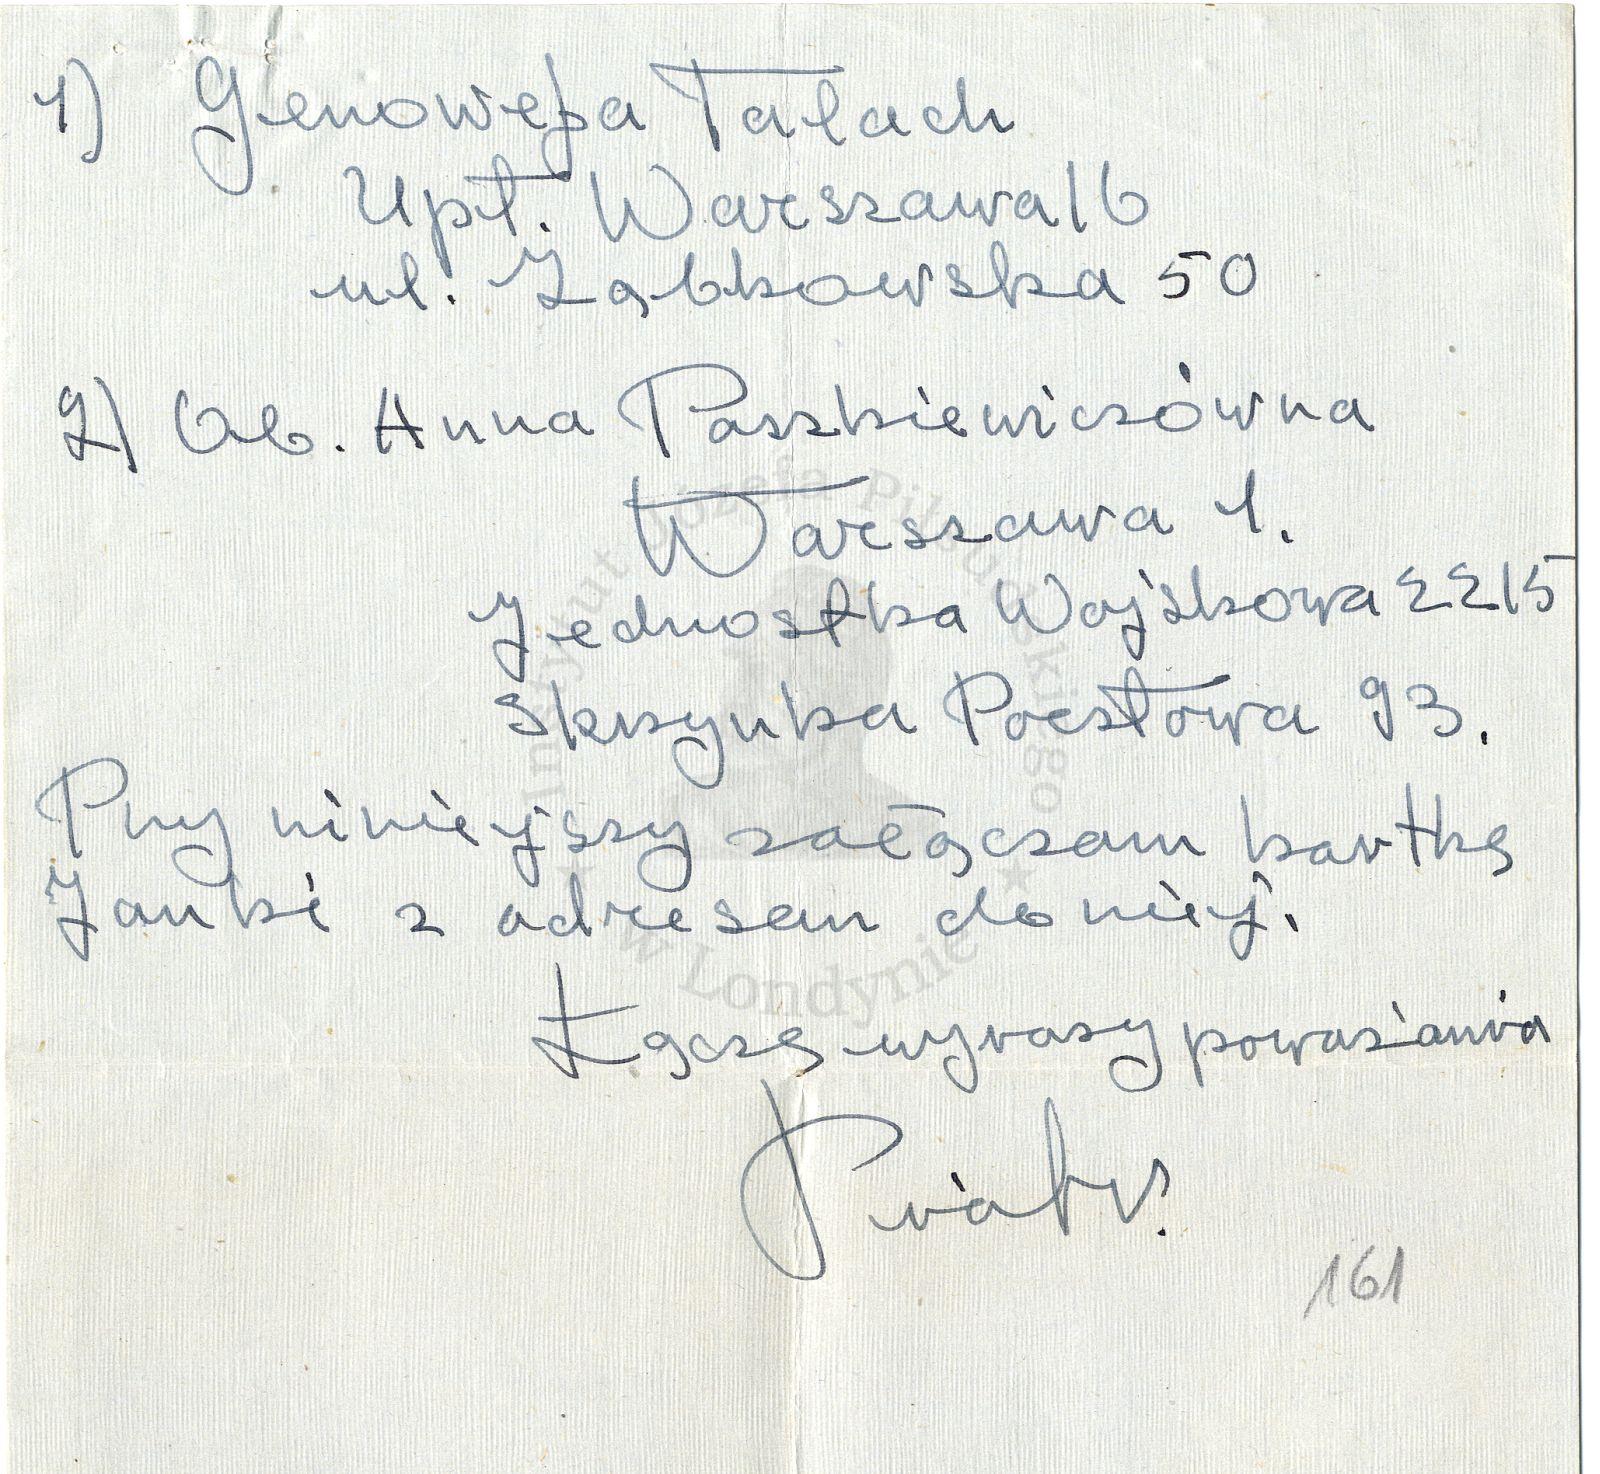 1) Genowefa Tałach
Upt. Warszawa 16
ul. Ząbkowska 50
2) Ob. Anna Paszkiewiczówna
Warszawa 1.
Jednostka Wojskowa 2215
Skrzynka Pocztowa 93.
Przy niniejszy załączam kartkę
Janki z adresem do niej.
Łączę wyrazy poważania
161
Instytut Józefa Piłsudskiego
w Londynie